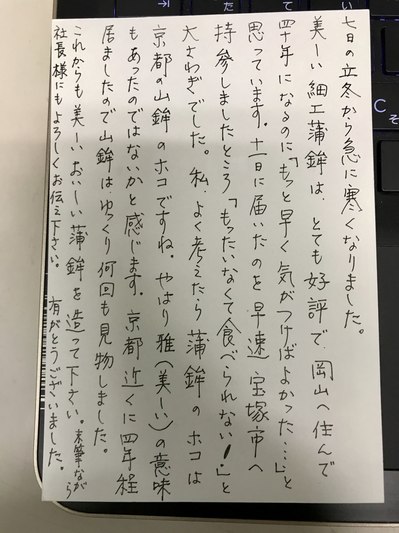 七日の立冬から急に寒くなりました。
美しい細工蒲鉾は、とても好評で、岡山へ住んで
四十年になるのに「もっと早く気がつけばよかった…」と
思っています。十一日に届いたのを早速宝塚市へ
持参しましたところ「もったいなくて食べられない!」と
大さわぎでした。私、よく考えたら蒲鉾のホコは
京都の山鉾のホコですね。やはり雅(美しい)の意味
もあったのではないかと感じます。京都近くに四年程
居ましたので山鉾はゆっくり何回も見物しました。
これからも美しいおいしい蒲鉾を造って下さい。末筆ながら
社長様にもよろしくお伝え下さい。 有がとうございました。